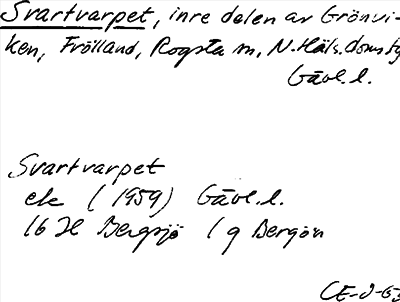 Svartvarpet, inre delen av Grönvi-
ken, Frölland, Rogsta sn, N. Häls. doms.
Gävl. l.
Svartvarpet
ek (1959) Gävl. l.
16 H Bergsjö 1 g Bergön